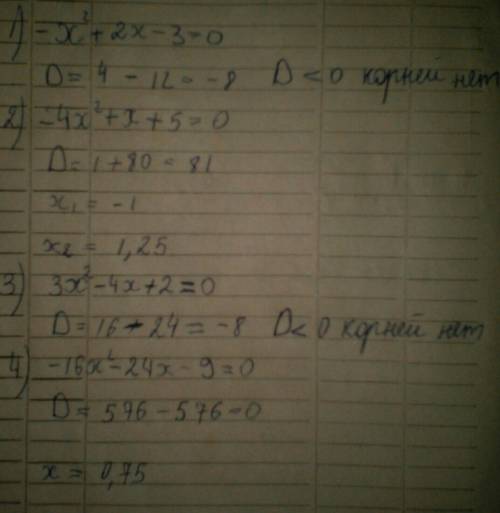 1) -x²+2x-3=0
D=4-12=-8 D<0 корней нет
2) -4x²+x+5=0
D=1+80=81
x₁=-1
x₂=1,25
3) 3x²-4x+2=0
D=16-24=-8 D<0 корней нет
4) -16x²-24x-9=0
D=576-576=0
x=0,75